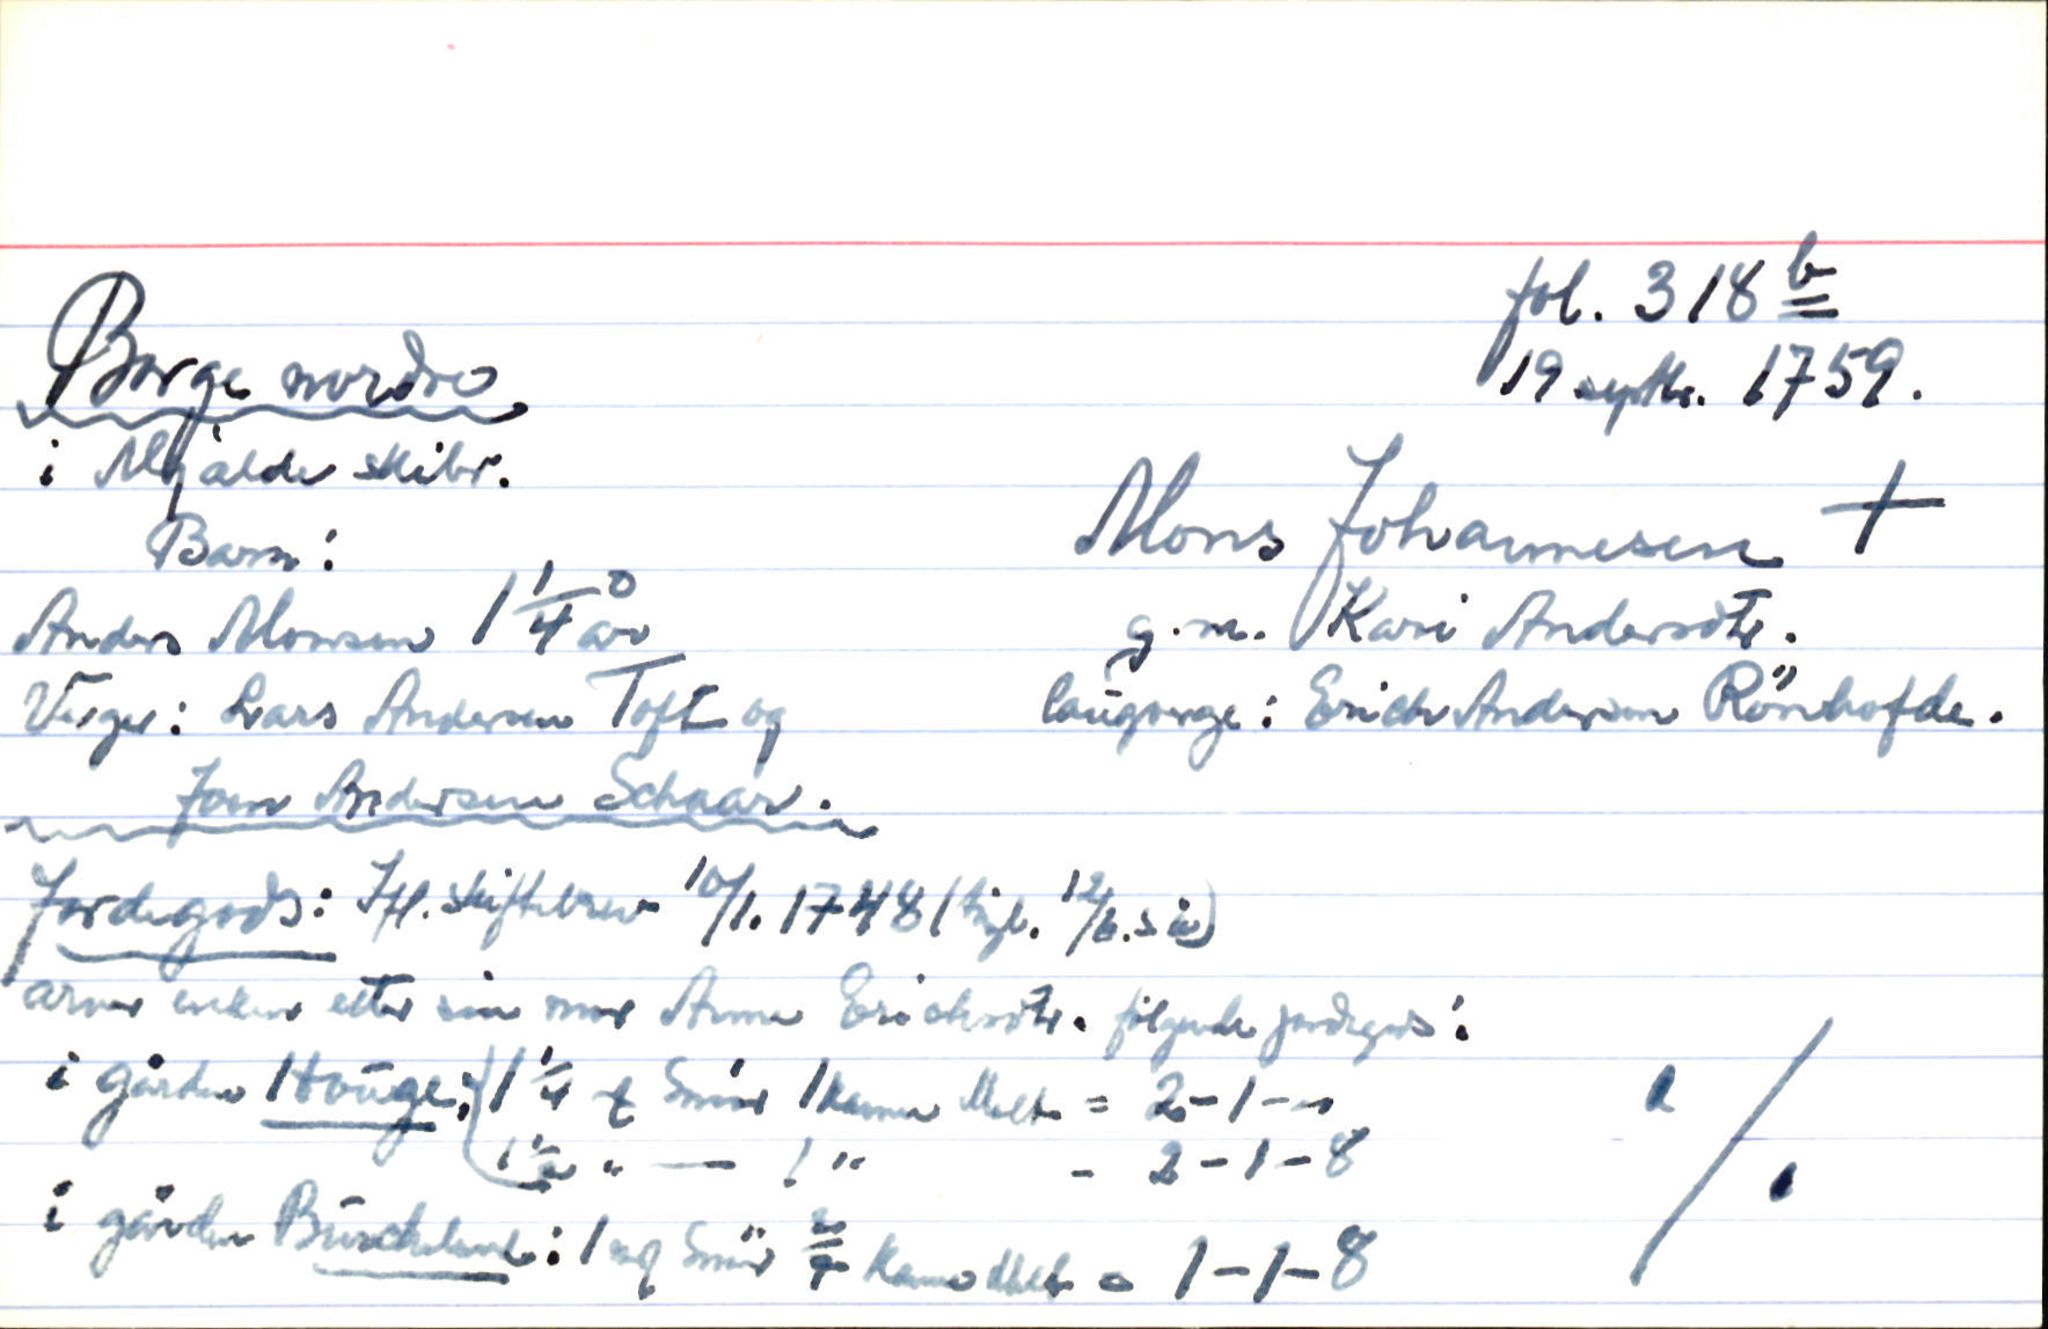 fol. 318 b
Borge nordre
19 septbr. 1759.
i Mjælde skibr.
Mons Johannesen +
Barn:
Anders Monsen 1 1/4 år
g.m. Kari Andersdtr.
Verger: Lars Andersen Toft og
laugverge: Erich Andersen Rönhofde.
Joen Andersen Schaar.
Jordegods: Ifl. skiftebrev 10/1. 1748 (tingl. 12/6. s.å.)
arver enken etter sin mor Anna Erichsdtr. følgende jordegods:
i gården Houge: 1 1/4 Smör 1 kanne Malt = 2-1-"
1 1/2 " — ! " - 2-1-8
i gården Burcheland: 1 mg Smör 3/4 Kanne Malt = 1-1-8